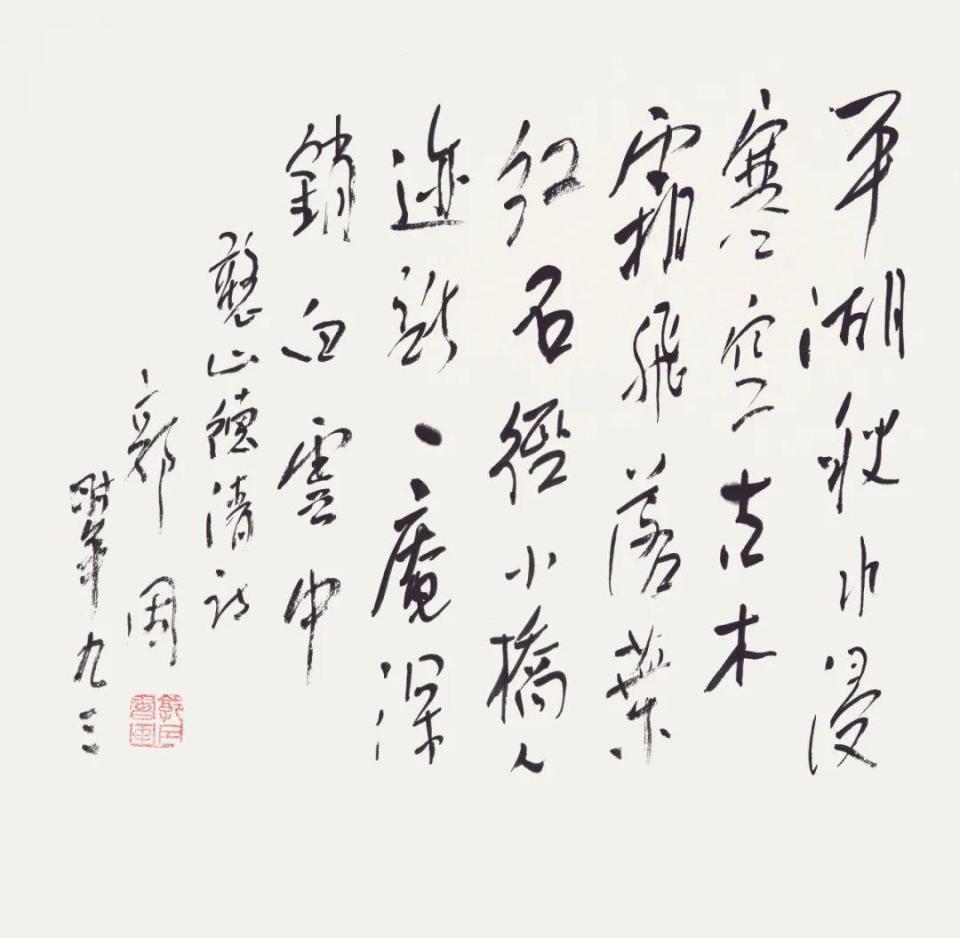 平湖秋水浸
寒空古木
霜飛落葉
紅石徑小橋人
迹斷一庵深
鎖白雲中
憨山德清詩
郭因
時年九三